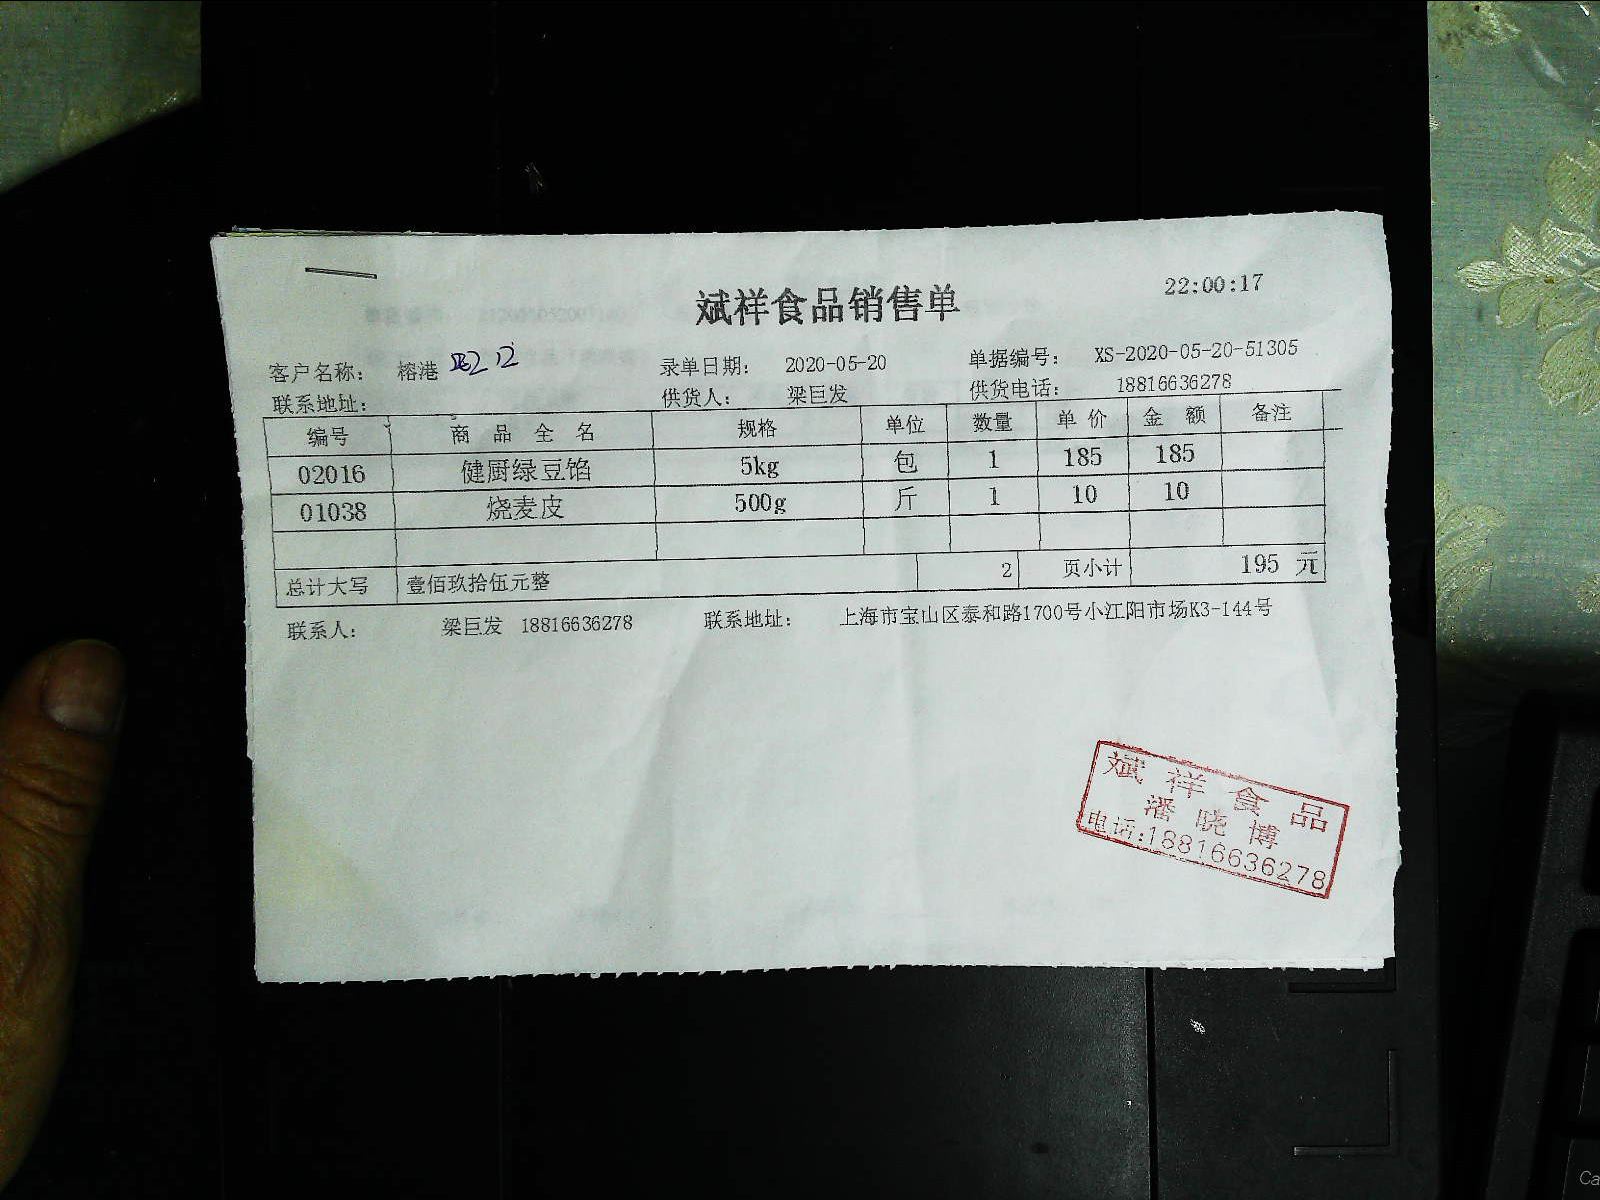 22:00:17
斌祥食品销售单
客户名称： 榕港 录单日期： 2020-05-20 单据编号： XS-2020-05-20-51305
联系地址： 供货人： 梁巨发 供货电话： 18816636278
编号 商 品 全 名 规格 单位 数量 单 价 金 额 备注
02016 健厨绿豆馅 5kg 包 1 185 185
01038 烧麦皮 500g 斤 1 10 10
总计大写 壹佰玖拾伍元整 2 页小计 195 元
联系人： 梁巨发 18816636278 联系地址： 上海市宝山区泰和路1700号小江阳市场K3-144号
斌祥食品
潘晓博
电话:18816636278